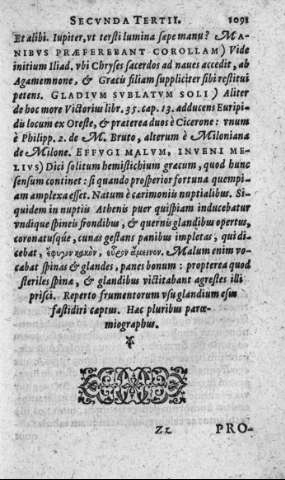 SECVNDA TERTII. 1091
Et alibi. Iupiter, vt tersti lumina sæpe manu? MA-
NIBVS PRÆFEREBANT COROLLAM) Vide
initium Iliad. vbi Chryses sacerdos ad naues accedit, ab
Agamemnone, & Græcis filiam suppliciter sibi restitui
petens. GLADIVM SVBLATVM SOLI) Aliter
de hoc more Victorius libr. 35. cap. 13. adducens Euripi-
dis locum ex Oreste, & præterea duos è Cicerone: vnum
è Philipp. 2. de M. Bruto, alterum è Miloniana
de Milone. EFFVGI MALVM, INVENI ME-
LIVS) Dici solitum hemistichium græcum, quod hunc
sensum continet: si quando prosperior fortuna quempi-
am amplexa esset. Natum è carimoniis nuptialibus. Si-
quidem in nuptiis Athenis puer quispiam inducebatur
vndique spineis frondibus, & quernis glandibus opertus,
coronatusque, cunas gestans panibus impletas, qui di-
cebat, ἔφυγον κακὸν, εὗρον ἄμεινον. Malum enim vo-
cabat spinas & glandes, panes bonum: propterea quod
steriles spinæ, & glandibus victitabant agrestes illi
prisci. Reperto frumentorum vsu glandium esus
fastidiri cæptus. Hæc pluribus parœ-
miographus.
Zz PRO-